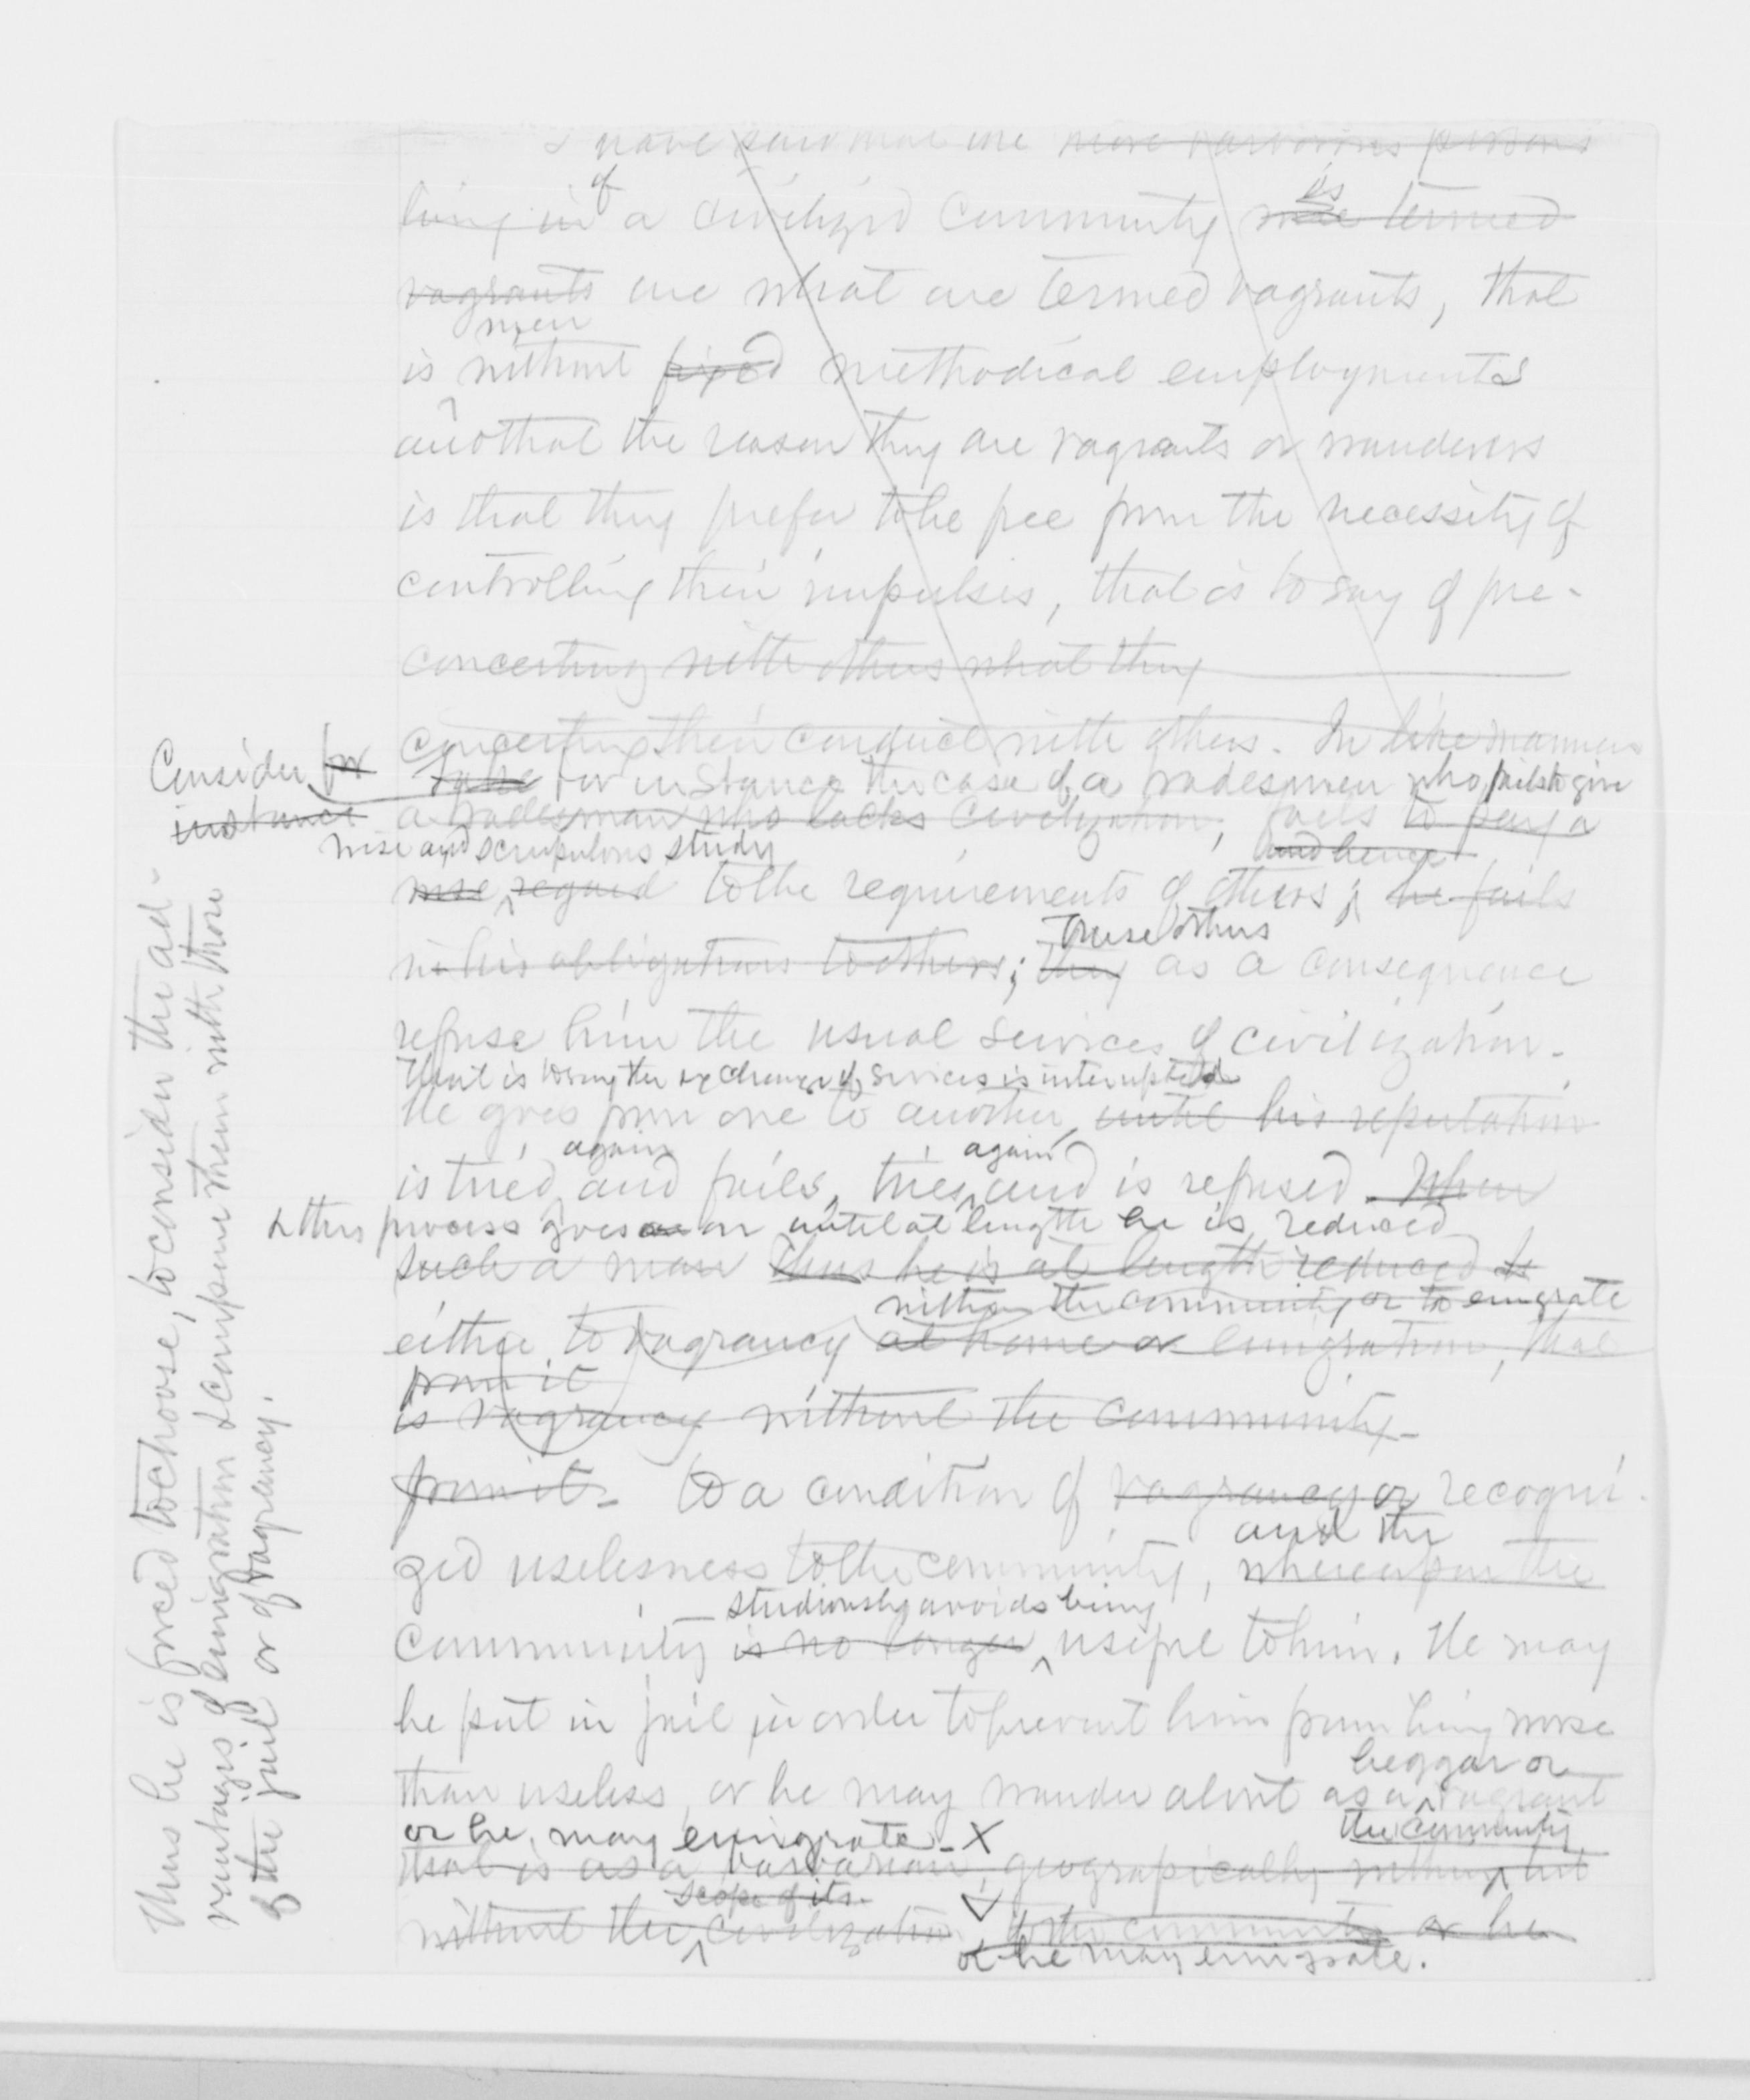 I have said that the more barbarous persons
of is
living in a civilized community are termed
vagrants are what are termed vagrants, that
men
is without fixed methodical employments
and that the reason they are vagrants or wanderers
is that they prefer to be free from the necessity of
controlling their impulses, that is to say of pre-
concerting with others what they
concerting their conduct with others. In like manner
Consider for take for instance the case of a tradesman who fails to give
instance a tradesman who lacks civilization, fails to pay a
wise and scrupulous study and hence
wise regard to the requirements of others; he fails
these others
in his obligations to others; they as a consequence
refuse him the usual services of civilization.
That is to say the exchange of services is interrupted
He goes from one to another, until his reputation
again again
is tried and fails, tries and is refused. When
& this process goes on until at length he is reduced
such a man thus he is at length reduced to
within the community or to emigrate
either to vagrancy at home or emigration, that
from it
is vagrancy without the community-
from it- to a condition of vagrancy or recogni-
and the
zed uselesness to the community, whereupon the
studiously avoids being
community is no longer useful to him. He may
be put in jail in order to prevent him from being worse
beggar or
than useless, or he may wander about as a vagrant
or he may emigrate- X the community
that is as a barbarian, geograpically within but
scope of its
without the civilization to the community or he
or he may emigrate.
Thus he is forced to choose, to consider the ad-
vantages of emigration & compare them with those
of the jail or of vagrancy.